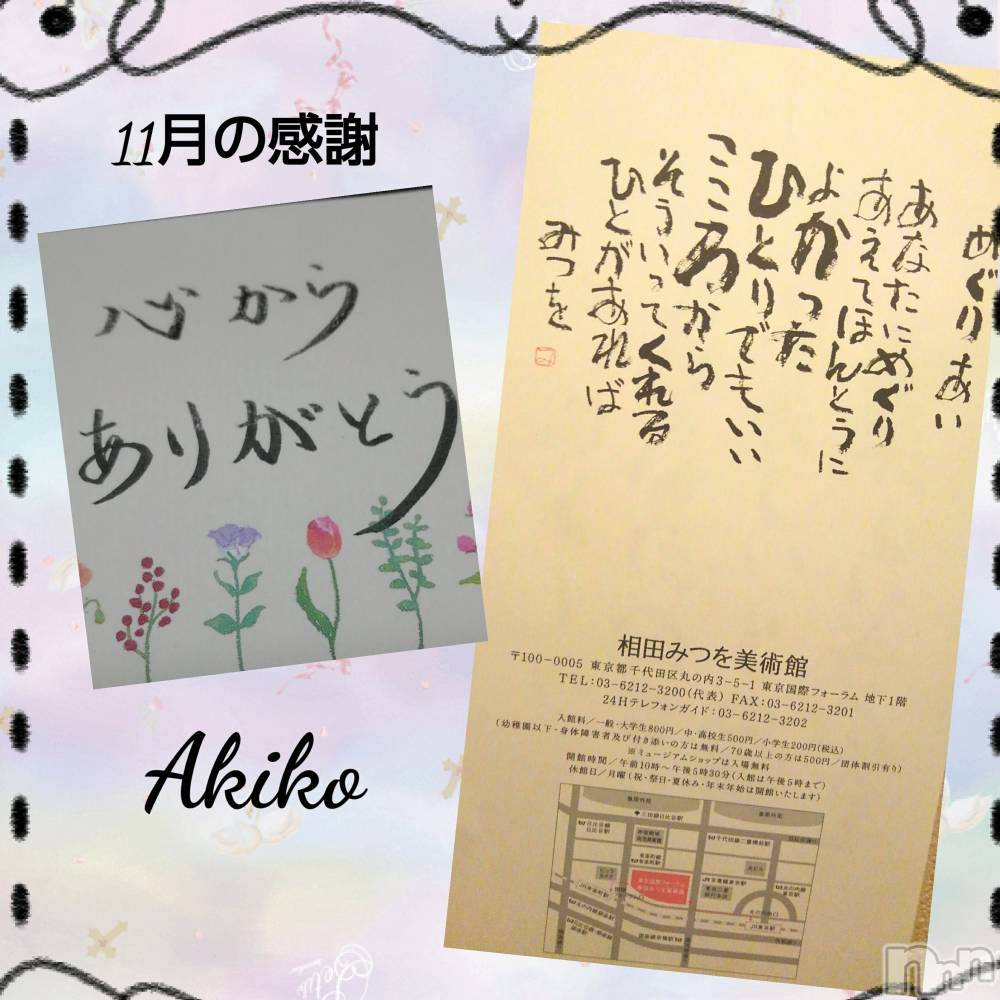 11月の感謝
心から
ありがとう
Akiko
めぐりあい
あなたにめぐり
あえてほんとうに
よかった
ひとりでもいい
こころから
そういってくれる
ひとがあれば
みつを
相田みつを美術館
〒100-0005 東京都千代田区丸の内3-5-1 東京国際フォーラム 地下1階
TEL:03-6212-3200(代表) FAX:03-6212-3201
24Hテレフォンガイド:03-6212-3202
入館料/一般・大学生800円/中・高校生500円/小学生200円(税込)
(幼稚園以下・身体障害者及び付き添いの方は無料/70歳以上の方は500円/団体割引有り)
※ミュージアムショップは入場無料
開館時間/午前10時〜午後5時30分(入館は午後5時まで)
休館日/月曜(祝・祭日・夏休み・年末年始は開館いたします)
皇居外苑
皇居外苑
三田線日比谷駅
日比谷線
日比谷駅
千代田線二重橋前駅
有楽町線
有楽町駅
JR有楽町駅
JR東京駅